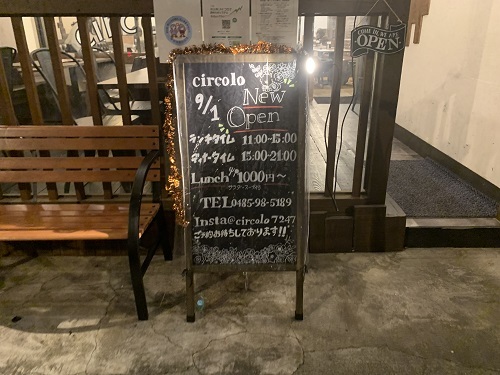 circolo
9/1
New
Open
ランチタイム 11:00~15:00
ディナータイム 15:00~21:00
Lunch 1000円〜
サラダ・スープ付
TEL 0485-98-5189
Insta@circolo7247
ご予約お待ちしております!!
COME IN WE ARE
OPEN